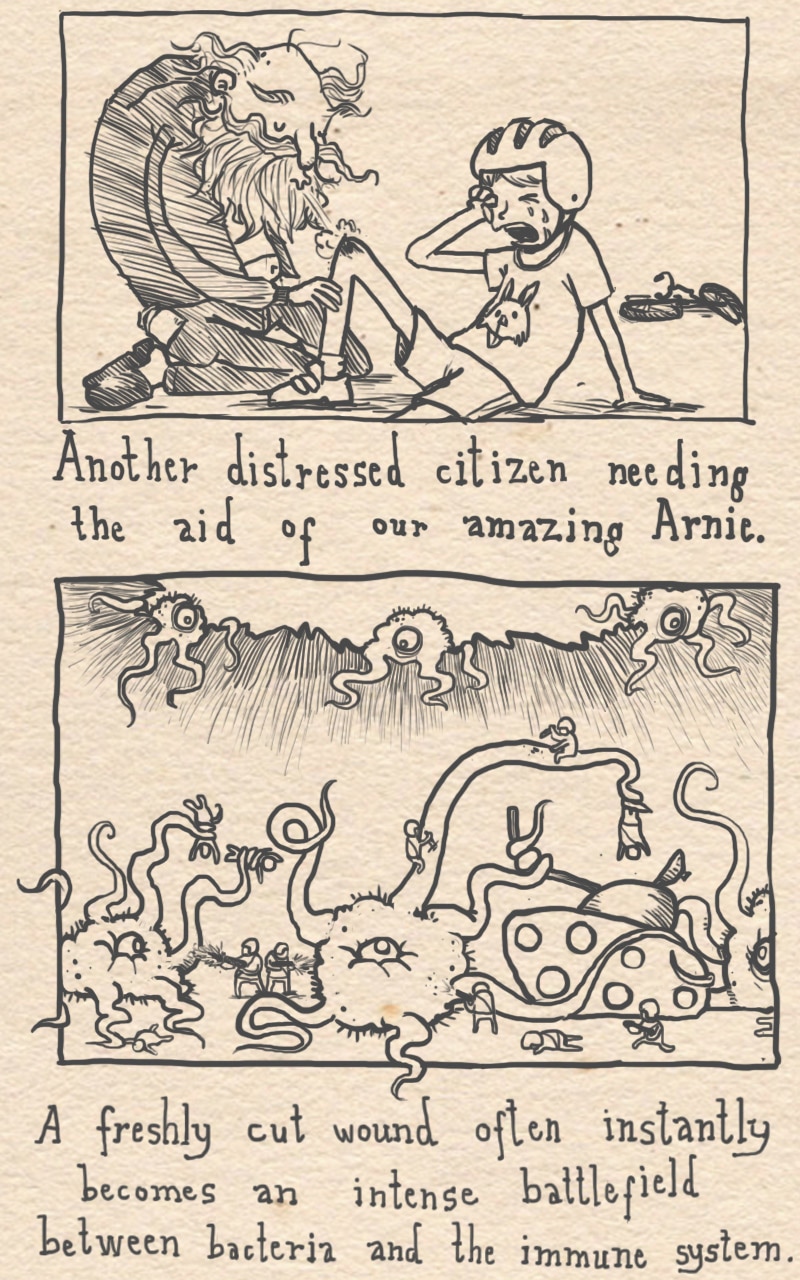 Another distressed citizen needing
the aid of our amazing Arnie.
A freshly cut wound often instantly
becomes an intense battlefield
between bacteria and the immune system.